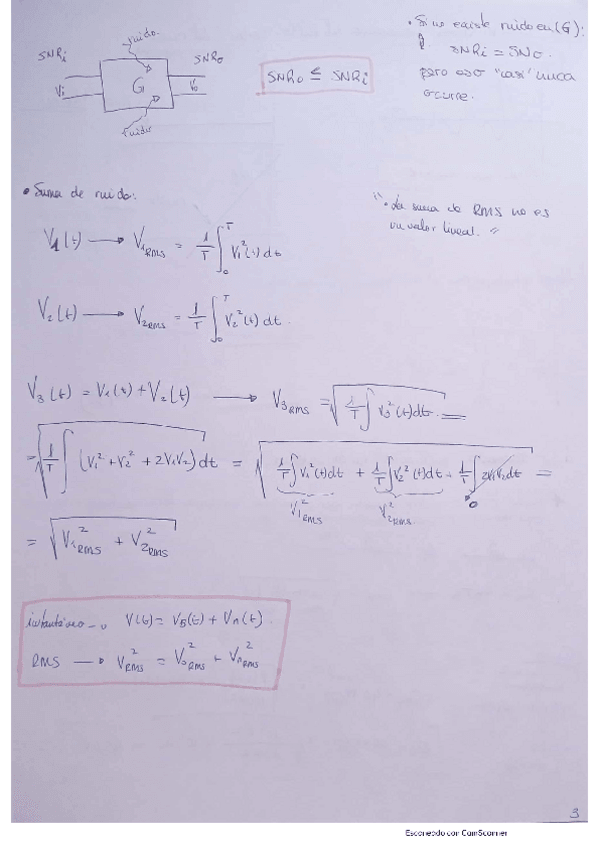 ruido.
SNRi
SNRo
G
Vi
Vo
ruido
SNRo ≤ SNRi
• Si no existe ruido en (G):
SNRi = SNo.
pero eso "casi" nunca
ocurre.
• Suma de ruido:
"• La suma de RMS no es
un valor lineal."
V1(t) → V1RMS = 1/T ∫₀ᵀ V1²(t) dt
V2(t) → V2RMS = 1/T ∫₀ᵀ V2²(t) dt.
V3(t) = V1(t) + V2(t) → V3RMS = √(1/T ∫ V3²(t) dt) =
= √(1/T ∫ (V1² + V2² + 2V1V2) dt) = √(1/T ∫ V1²(t) dt + 1/T ∫ V2²(t) dt + 1/T ∫ 2V1V2 dt) =
V1²RMS V2²RMS. 0
= √(V1²RMS + V2²RMS)
instantáneo → V(t) = Vs(t) + Vn(t).
RMS → V²RMS = Vs²RMS + Vn²RMS
3
Escaneado con CamScanner